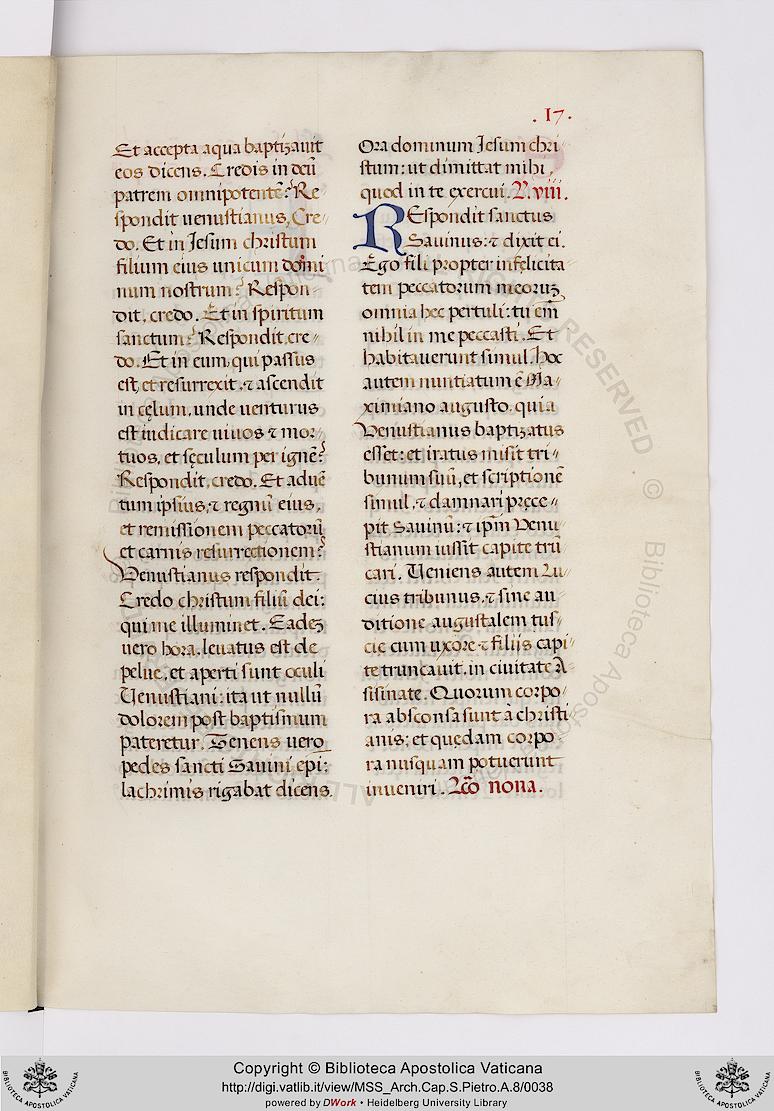 .17.
Et accepta aqua baptizauit
eos dicens. Credis in deũ
patrem omnipotentẽ? Re
spondit uenustianus, Cre-
do. Et in Jesum christum
filium eius unicum domi
num nostrum? Respon-
dit, credo. Et in spiritum
sanctum? Respondit, cre-
do. Et in eum, qui passus
est, et resurrexit, ⁊ ascendit
in cęlum, unde uenturus
est iudicare uiuos ⁊ mor-
tuos, et sęculum per ignẽ?
Respondit, credo. Et aduẽ
tum ipsius, ⁊ regnũ eius,
et remissionem peccatorũ
et carnis resurrectionem?
Venustianus respondit.
Credo christum filiũ dei:
qui me illuminet. Eadeꝫ
uero hora, leuatus est de
pelue, et aperti sunt oculi
Uenustiani: ita ut nullũ
dolorem post baptismum
pateretur. Tenens uero
pedes sancti Sauini epi:
lachrimis rigabat dicens.
Ora dominum Jesum chri-
stum: ut dimittat mihi,
quod in te exercui. R. viii.
REspondit sanctus
Sauinus: ⁊ dixit ei.
Ego fili propter infęlicita
tem peccatorum meoruꝫ
omnia hec pertuli: tu em̃
nihil in me peccasti. Et
habitauerunt simul. Hoc
autem nuntiatum ẽ Ma-
ximiano augusto, quia
Venustianus baptizatus
esset: et iratus misit tri-
bunum suũ, et scriptionẽ
simul, ⁊ damnari pręce-
pit Sauinũ: ⁊ ipm̃ Venu-
stianum iussit capite trũ
cari. Ueniens autem Lu-
cius tribunus, ⁊ sine au-
ditione augustalem tus-
cię cum uxore ⁊ filijs capi
te truncauit, in ciuitate A
sisinate. Quorum corpo-
ra absconsa sunt à christi
anis: et quędam corpo
ra nusquam potuerunt
inueniri. Lc̃o nona.
Copyright © Biblioteca Apostolica Vaticana
http://digi.vatlib.it/view/MSS_Arch.Cap.S.Pietro.A.8/0038
powered by DWork • Heidelberg University Library
BIBLIOTECA APOSTOLICA VATICANA
BIBLIOTECA APOSTOLICA VATICANA